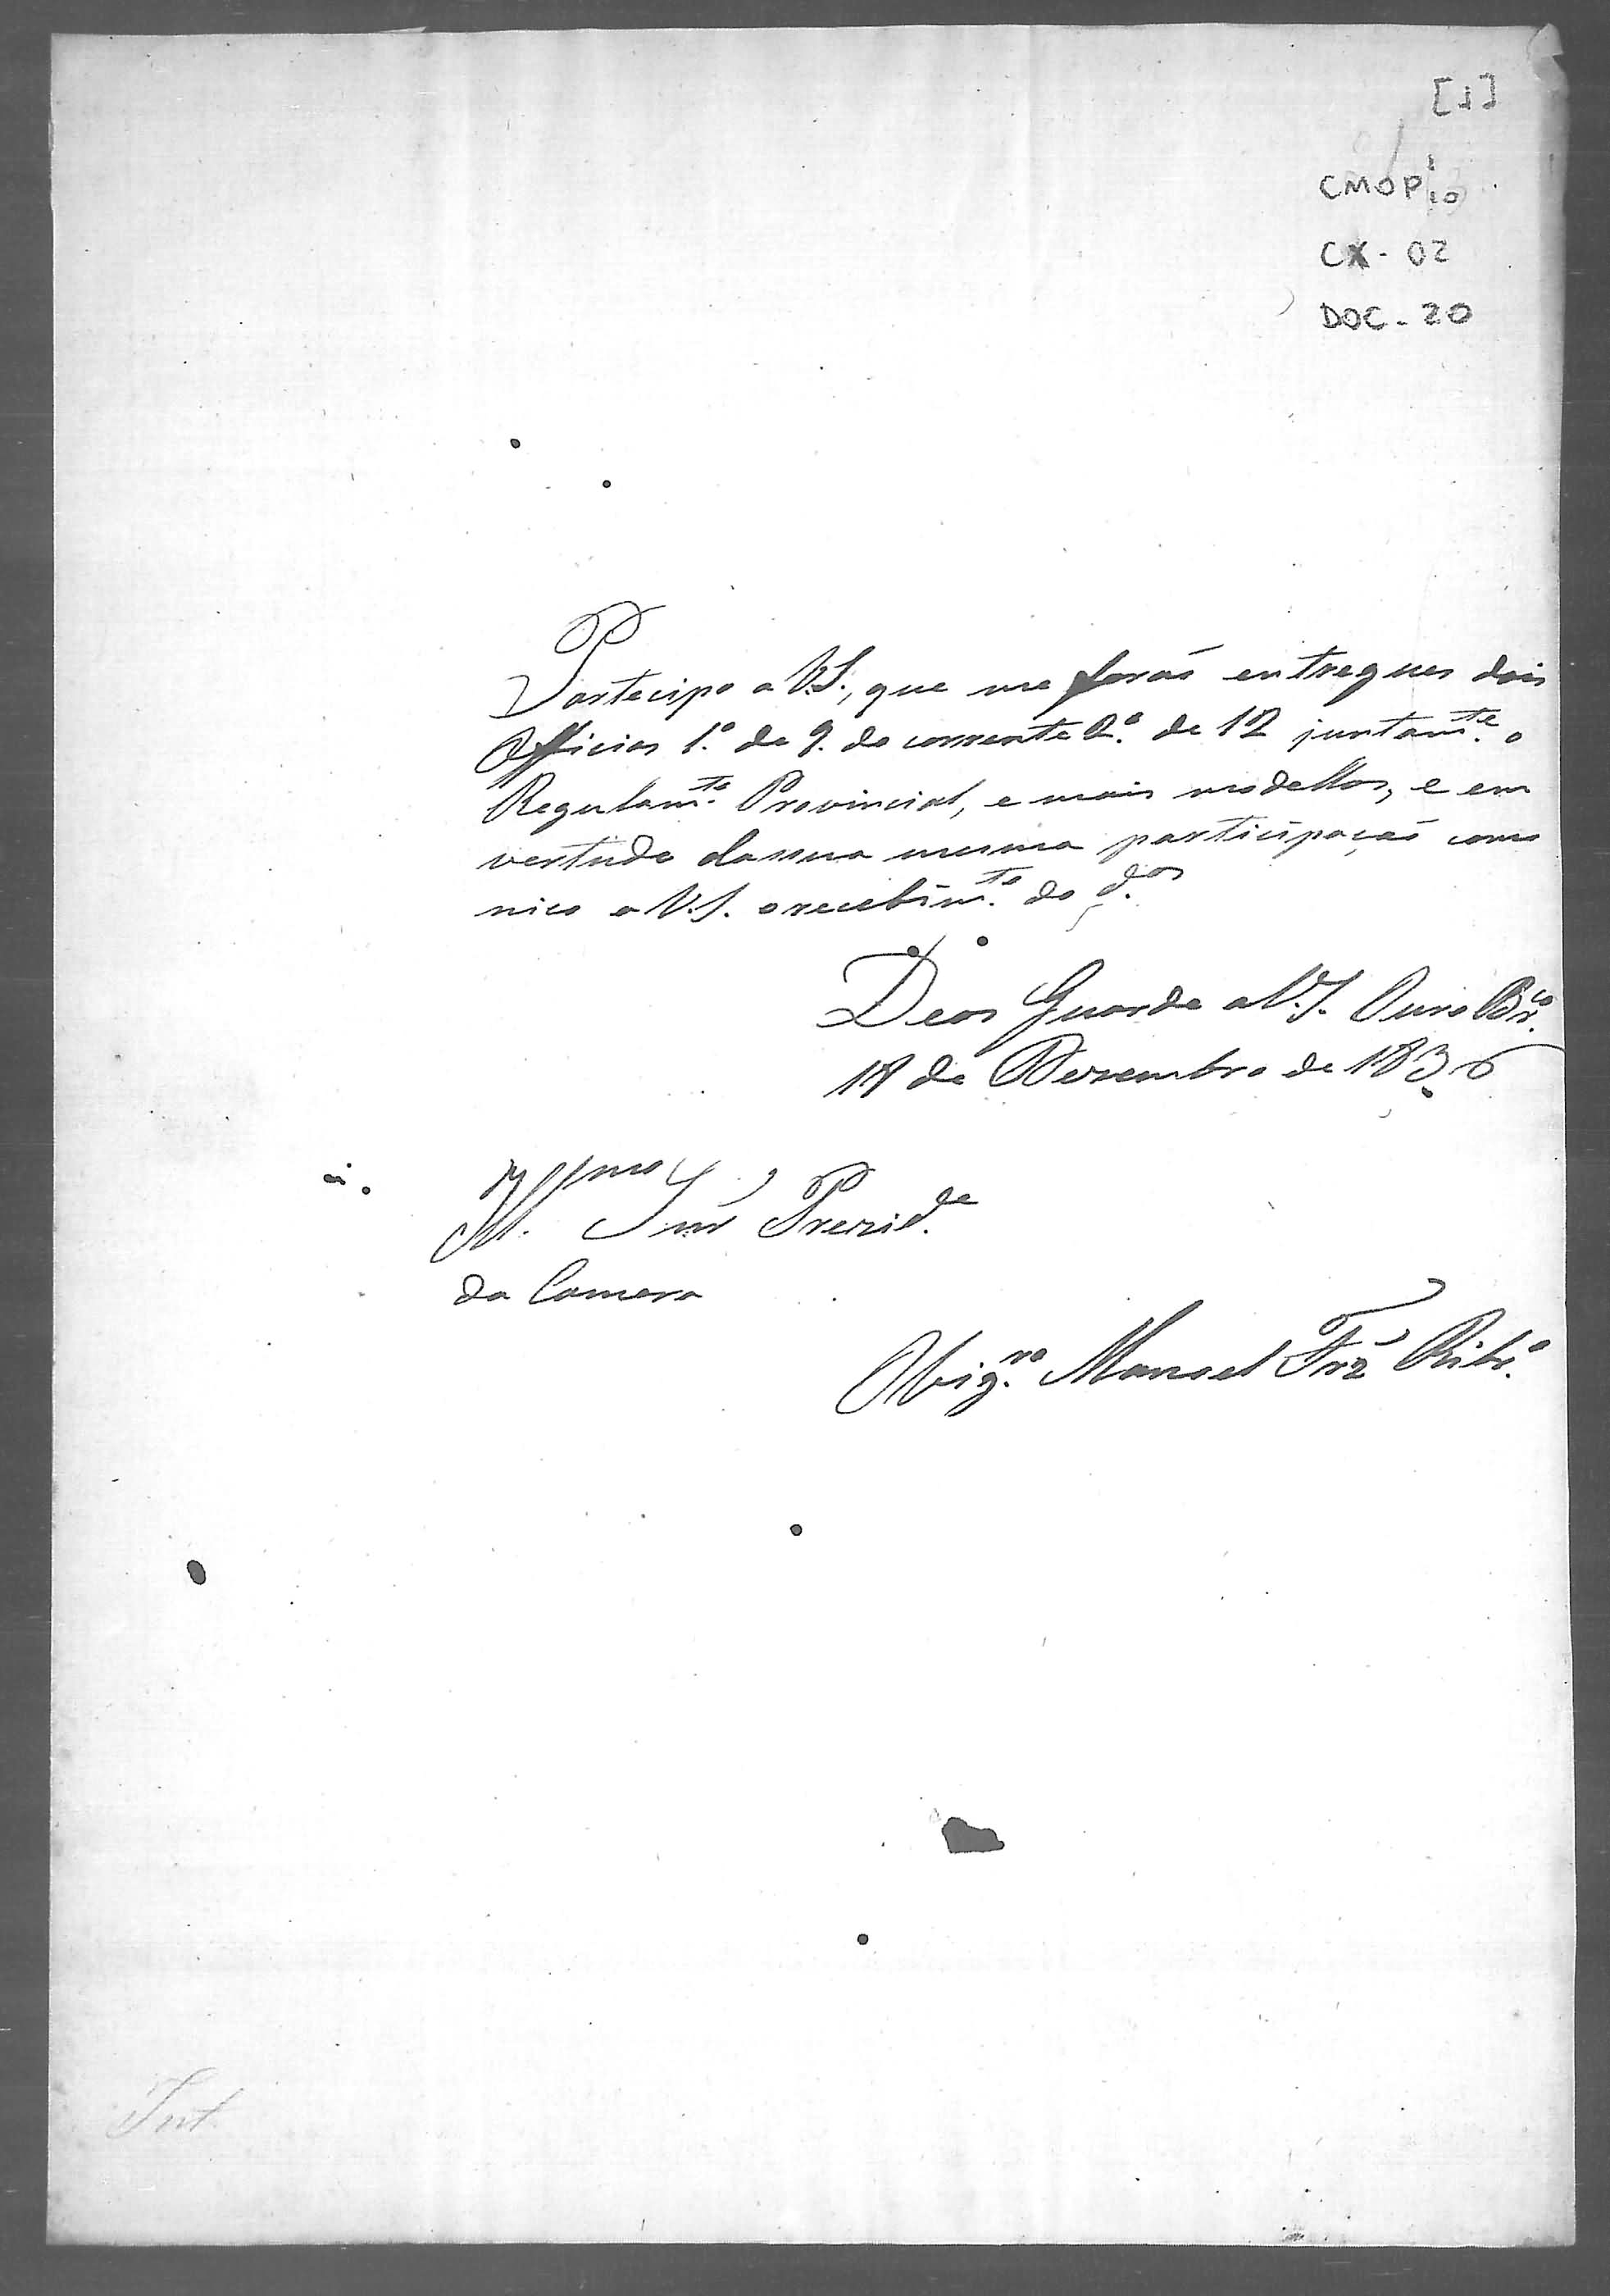 [1]
CMOP
CX - 02
DOC - 20
Partecipo a V.S., que me foraõ entregues dois
Officios 1.º de 9. do corrente 2.º de 12 juntam.te o
Regulam.to Provincial, e mais modellos, e em
vertude dassua mesma participaçaõ como
nico a V.S. o recebim.to do d.os
Deos Guarde a V.S. Ouro Pr.co
18 de Dezembro de 1836
Ill.mo Snr Prezid.de
da Camera
Manoel Frz Ribr.o
Int